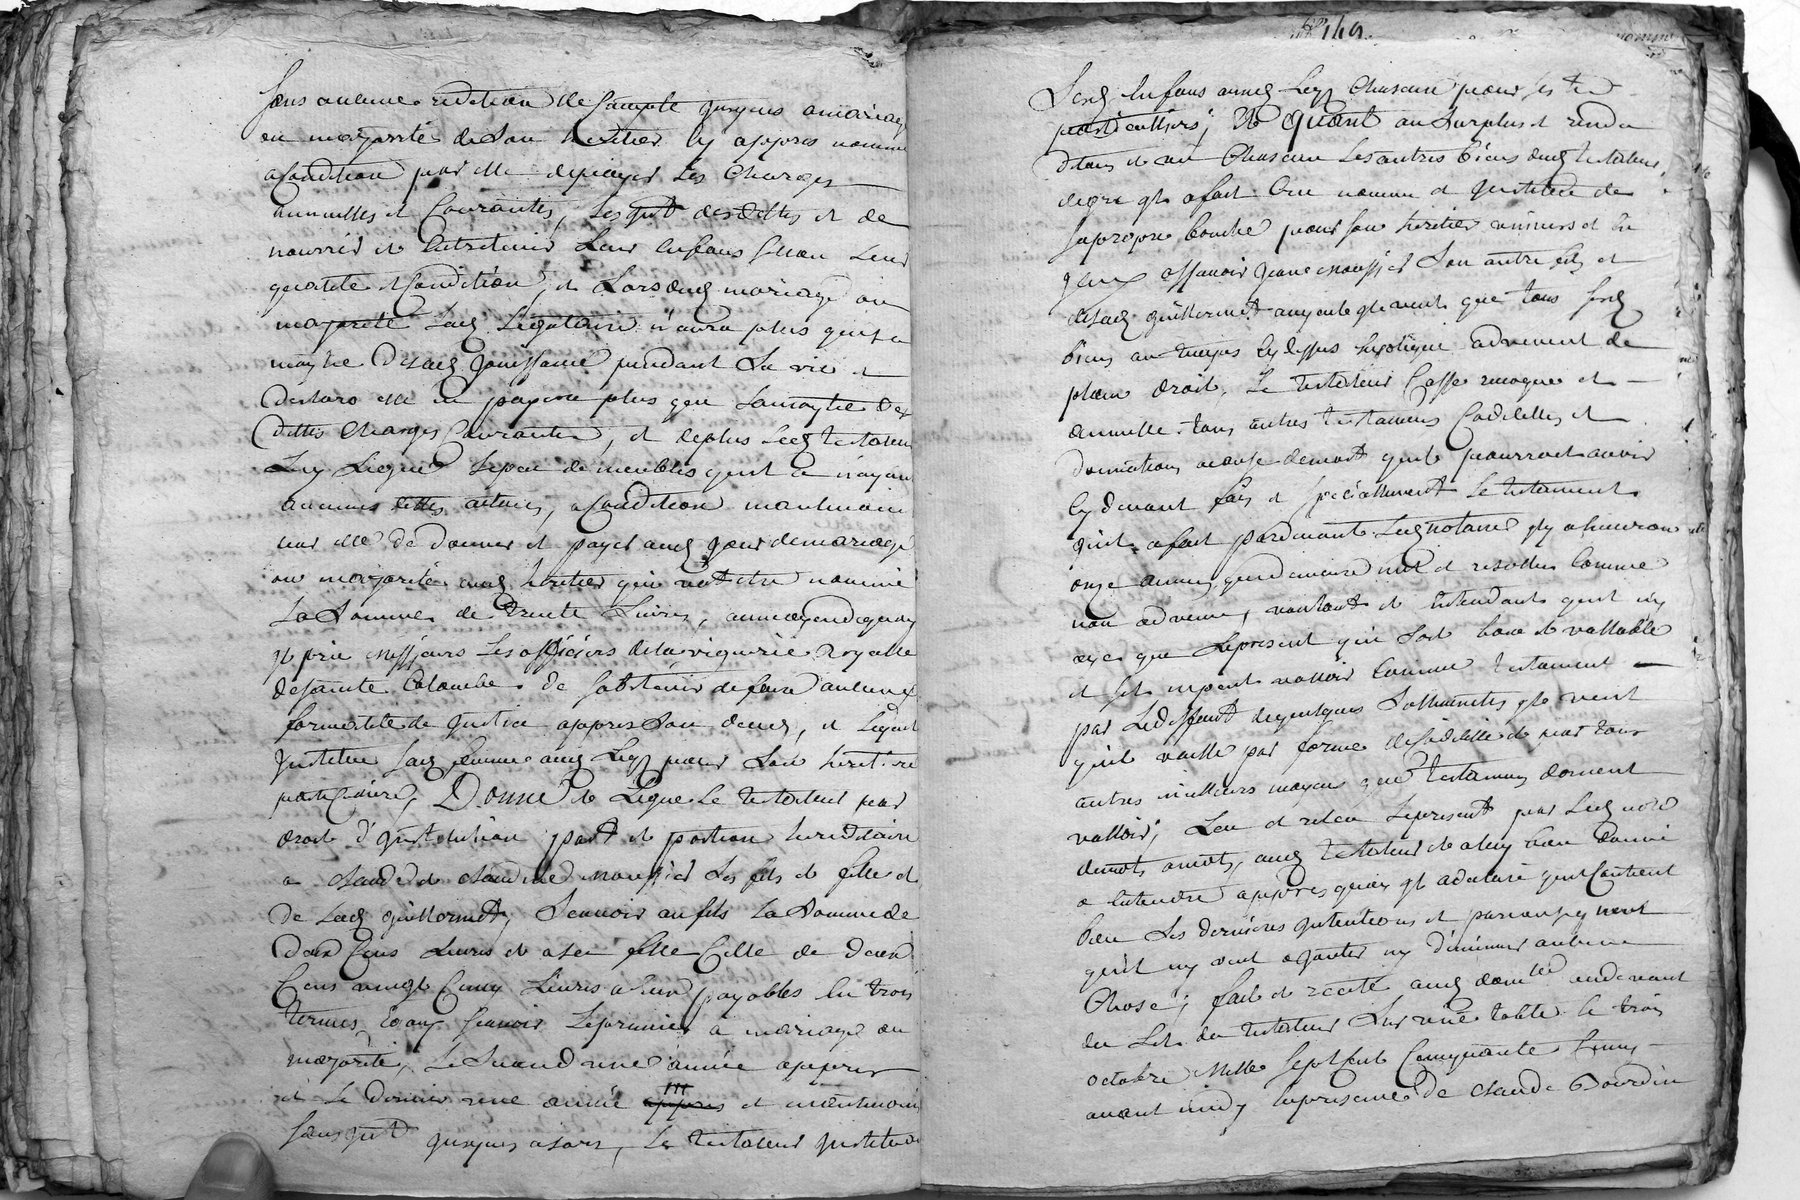 sans aucune redition de Compte jusques a mariage
ou majorité de son heritier cy appres nommé
a Condition par elle de payer les Charges
annuelles et Courantes, les dettes et de
nourrir et Entretenir leur Enfans selon leur
qualité et Condition, et Lors dud mariage ou
majorité lad Legataire n'aura plus que la
moytie de lad jouissance pendant sa vie et
deslors elle ne payera plus que la moytie des
dittes Charges Courantes, et deplus led testateur
Luy Legue le peu de meubles quil a n'ayant
aucunes dittes actives, a Condition
par elle de donner et payer aud jour de mariage
ou majorité aud heritier qui va être nommé
La Somme de trente Livres, au moyen de quoy
il prie messieurs Les officiers de la viguerie Royalle
de sainte Colombe de sabstenir de faire aucune
formalité de justice appres son deces, et Legue et
Institue sad femme aud Legs pour son heritiere
particuliere, Donne et Legue Le testateur par
droit d'Institution part et portion hereditaire
a Claude et Claudine Moussier Les fils et fille et
de lad Guillermet, Scavoir au fils la Somme de
deux Cens Livres et a sa fille Celle de deux
Cens vingt Cinq Livres a Eux payables En trois
termes Egaux scavoir Le premier a mariage ou
majorité, Le Second une année appres
et Le dernier une année appres et
sans jusques alors, Le testateur Institue
149
Lesd Enfans auxd Legs Chascun pour ses
particulliers; Et Quant au Surplus et
et en Chascun Les autres biens dud testateur
de gré il a fait Cree nommé et Institué de
sa propre bouche pour son heritier universel et
assavoir Jeane Moussier Son autre fils et
de lad Guillermet auquel il veut que tous sesd
biens au temps cy dessus Expliqué advienent de
plain droit, Le testateur Casse revoque et
annulle tous autres testamens Codicilles et
donnations a cause de mort quil pourroit avoir
Cy devant fais et specialement Le testament
quil a fait pardevant Led notaire il y a Environ
onze années quil demeure nul et resollu Comme
non advenu, voulant et Entendant quil n'y
aye que Le present qui Soit bon et vallable
et sil ne peut valloir Comme testament
par Le deffaut de quelques Solemnités il veut
quil vaille par forme de Codicille et par tous
autres meilleurs moyens que testamens doivent
valloir; Leu et releu Le present par Led not
de mot a mot, aud testateur et a luy bien donné
a Entendre appres quoy il a declaré quil Contient
bien Ses dernieres Intentions et
quil ny veut ajouter ny diminuer aucune
Chose; fait et recité aud au devant
du Lit du testateur Sur une table le trois
octobre Mille Sept Cent Cinquante Cinq
avant midy En presence de Claude Bourdin